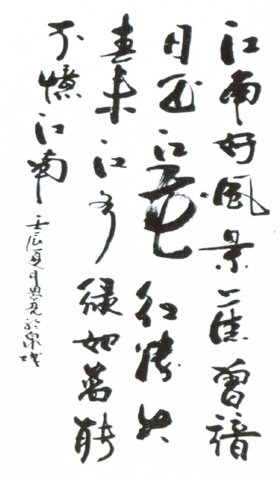 江南好風景舊曾諳
日出江花紅勝火
春来江水綠如藍能
不憶江南
壬辰夏月於泉城